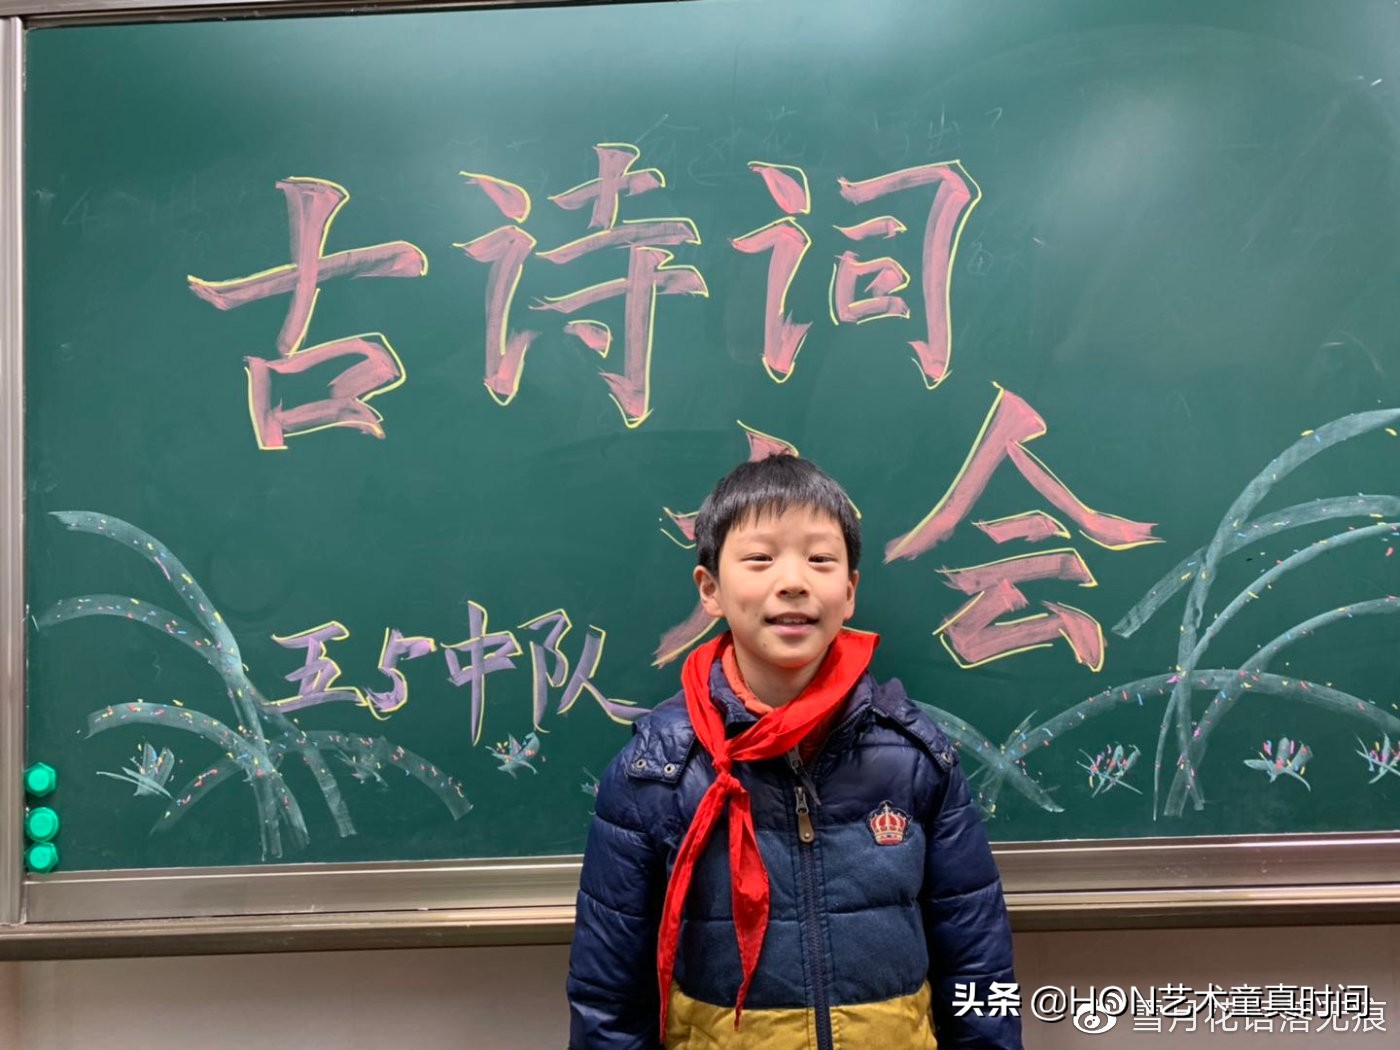 古诗词
会
五5中队
头条 @HON艺术童真时间
雪月花语落无痕